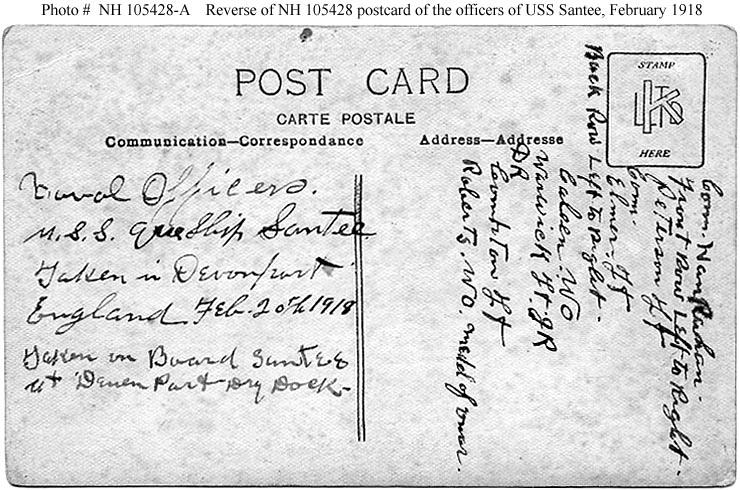 Photo # NH 105428-A Reverse of NH 105428 postcard of the officers of USS Santee, February 1918
POST CARD
CARTE POSTALE
Communication—Correspondance
Address—Addresse
STAMP
HERE
Naval Officers.
U.S.S. Q Ship Santee
Taken in Devonport
England Feb. 20th 1918
Taken on Board Santee
at Deven Port Dry Dock-
Comm.
Front Row Left to Right-
Peterson Lt
Elmer. Lt
Comm.
Back Row Left to Right-
WO
Warwick Lt. JR
DR
Compton Lt
Roberts. WO. medal of onor.